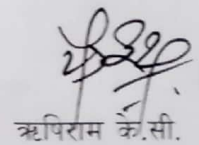 ऋषिराम के.सी.